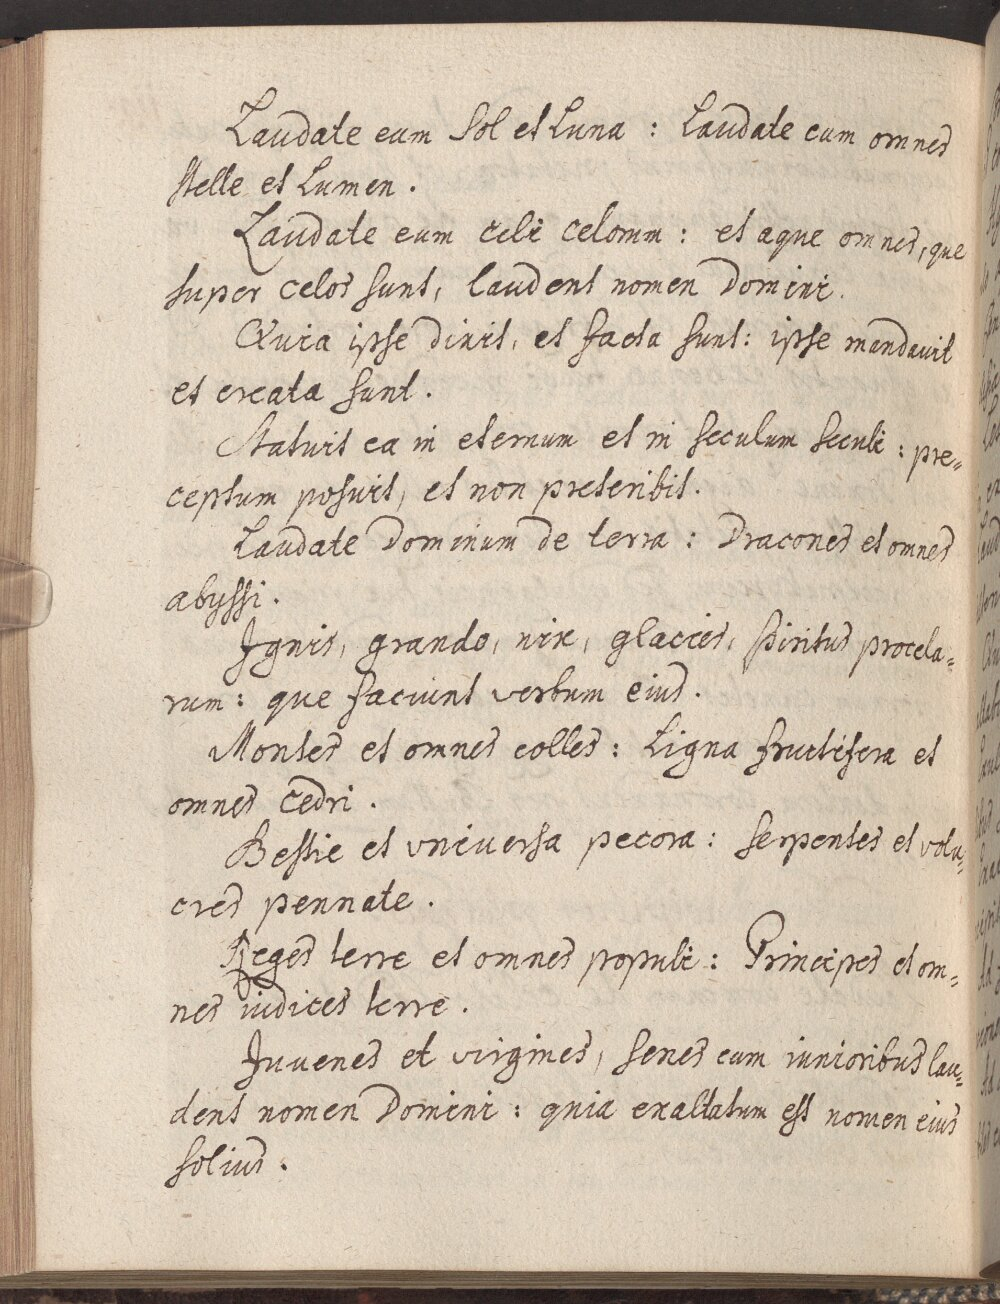 Laudate eum Sol et Luna : Laudate eum omnes
stelle et Lumen .
Laudate eum celi celorum : et aque omnes, que
super celos sunt, laudent nomen Domini .
Quia ipse dixit, et facta sunt : ipse mandavit
et creata sunt .
Statuit ea in eternum et in seculum seculi : pre=
ceptum posuit, et non preteribit .
Laudate Dominum de terra : Dracones et omnes
abyssi .
Ignis, grando, nix, glacies, spiritus procela=
rum : que faciunt verbum eius .
Montes et omnes colles : Ligna fructifera et
omnes cedri .
Bestie et vniuersa pecora : serpentes et volu=
cres pennate .
Reges terre et omnes populi : Principes et om=
nes iudices terre .
Juvenes et virgines, senes cum iunioribus lau=
dent nomen Domini : quia exaltatum est nomen eius
solius .